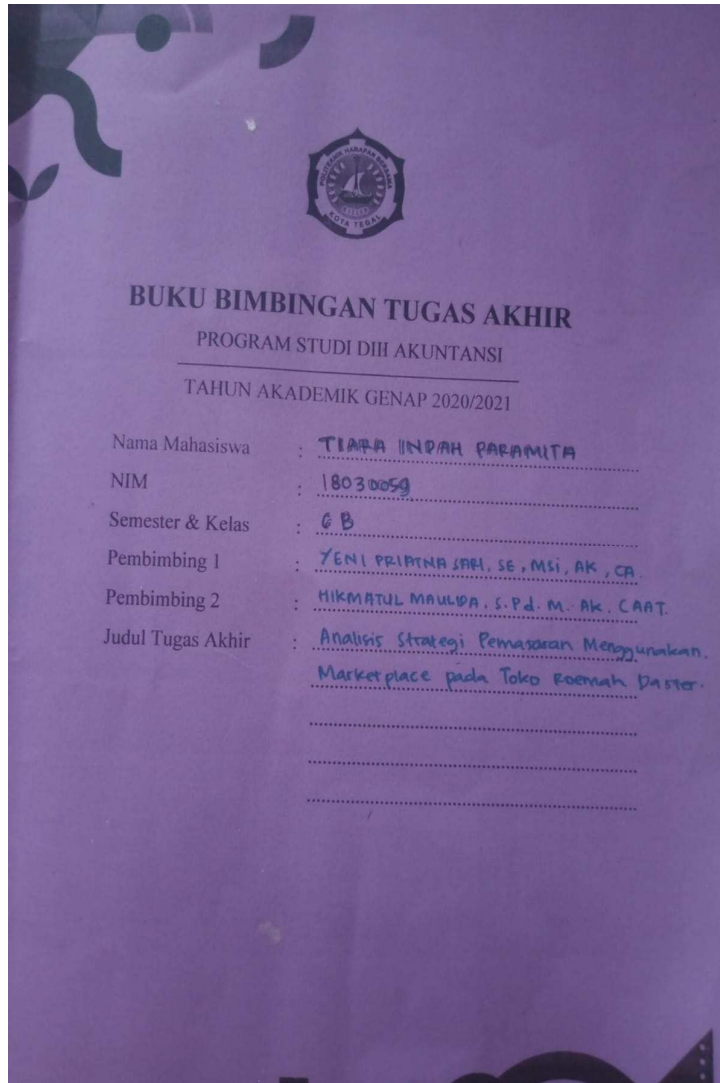 POLITEKNIK HARAPAN BERSAMA
KOTA TEGAL
BUKU BIMBINGAN TUGAS AKHIR
PROGRAM STUDI DIII AKUNTANSI
TAHUN AKADEMIK GENAP 2020/2021
Nama Mahasiswa : TIARA INDAH PARAMITA
NIM : 18030059
Semester & Kelas : 6 B
Pembimbing 1 : YENI PRIATNA SARI, SE, MSi, AK, CA.
Pembimbing 2 : HIKMATUL MAULIDA, S.Pd. M. Ak. CAAT.
Judul Tugas Akhir : Analisis Strategi Pemasaran Menggunakan.
Marketplace pada Toko Roemah Daster.